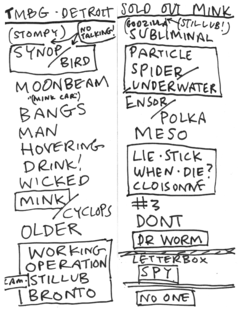 TMBG - DETROIT
(STOMPY)
NO TALKING!
SYNOP/
BIRD
MOONBEAM
(MINK CAR)
BANGS
MAN
HOVERING
DRINK!
WICKED
MINK/
CYCLOPS
OLDER
WORKING
OPERATION
STILLUB
BRONTO
SOLD OUT MINK
GODZILLA (STILLUB!)
SUBLIMINAL
PARTICLE
SPIDER/
UNDERWATER
ENSOR/
POLKA
MESO
LIE · STICK
WHEN · DIE?
CLOISONNÉ
#3
DONT
DR WORM
LETTERBOX
SPY
NO ONE